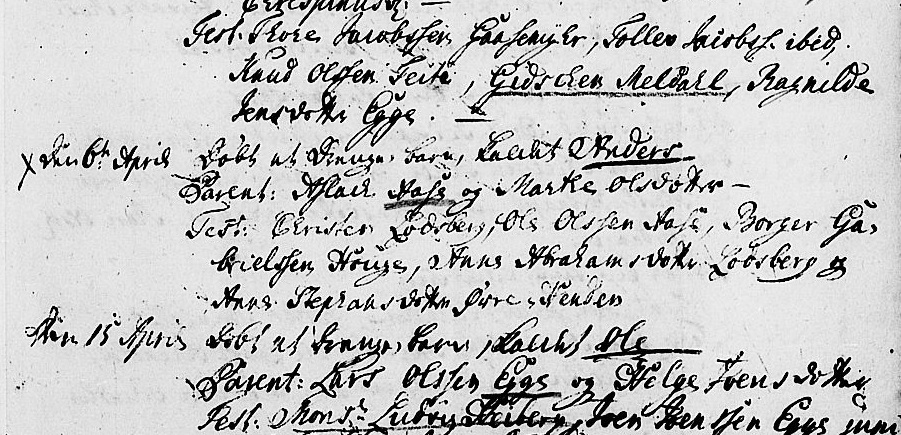 Test. Thore Jacobssen Haasemyhr, Tollev Jacobss. ibid,
Knud Olssen Feite, Gidschen Meldahl, Ragnilde
Jensdotter Egge. —
x Den 6te April Døbt et Drenge-barn, kaldet Anders
Parent: Aslach Aase og Marthe Olsdotter —
Test: Christen Lødsberg, Ole Olssen Aase, Borger Ga-
brielssen Houge, Anne Abrahamsdotter Lødsberg og
Anne Stephansdotter Øvre-Venden
Den 15 April Døbt et Drenge-barn, kaldet Ole
Parent: Lars Olssen Egge og Helge Joensdotter
Test. Monsr Ludvig Heiberg, Joen Joenssen Egge juni